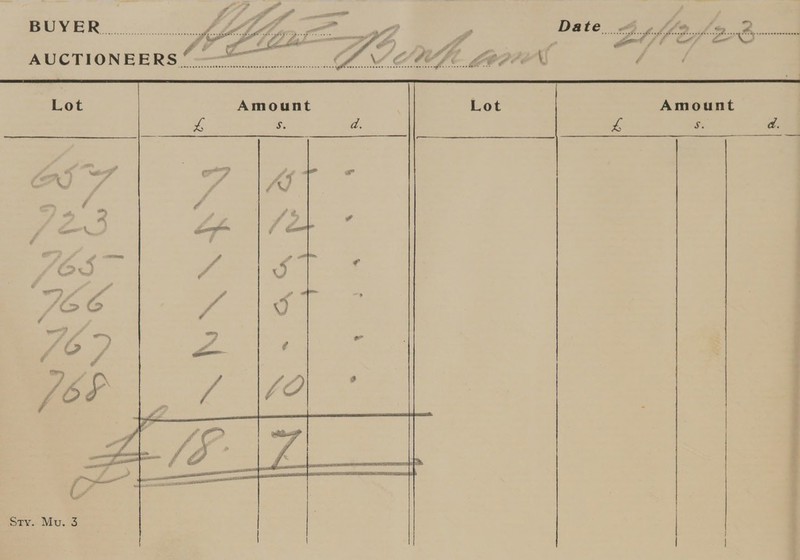 BUYER A Stow Date 21/12/23
AUCTIONEERS Bonhams
Lot Amount Lot Amount
£ s. d. £ s. d.
657 7 15 "
723 4 12 "
765 1 5 "
766 1 5 "
767 2 " "
768 1 10 "
£ 18. 7
STY. MU. 3